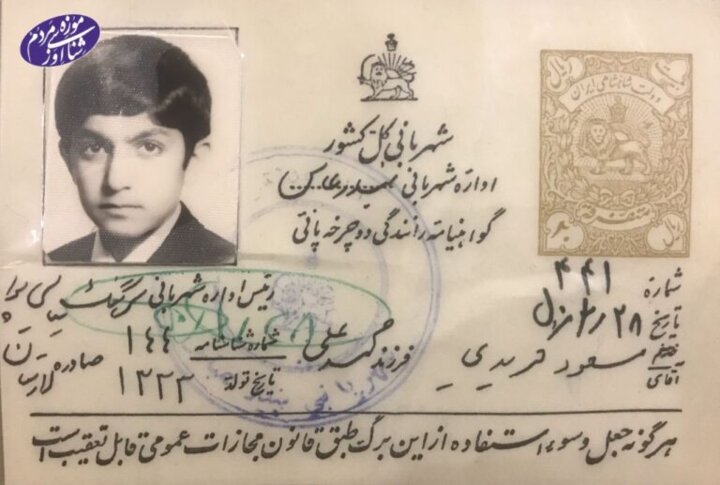 موزه‌ی مردم شناوزی
ریال بیست
دولت شاهنشاهی ایران
ریال
شهربانی کل کشور
اداره شهربانی بندرعباس
گواهینامه رانندگی دوچرخه پائی
شماره ۴۴۱
تاریخ ۲۸
خانم آقای مسعود فریدی
رئیس اداره شهربانی سرهنگ
فرزند محمد علی شماره شناسنامه ۱۴۴ صادره لارستان
تاریخ تولد ۱۳۳۳
هرگونه جعل و سوء استفاده از این برگ طبق قانون مجازات عمومی قابل تعقیب است